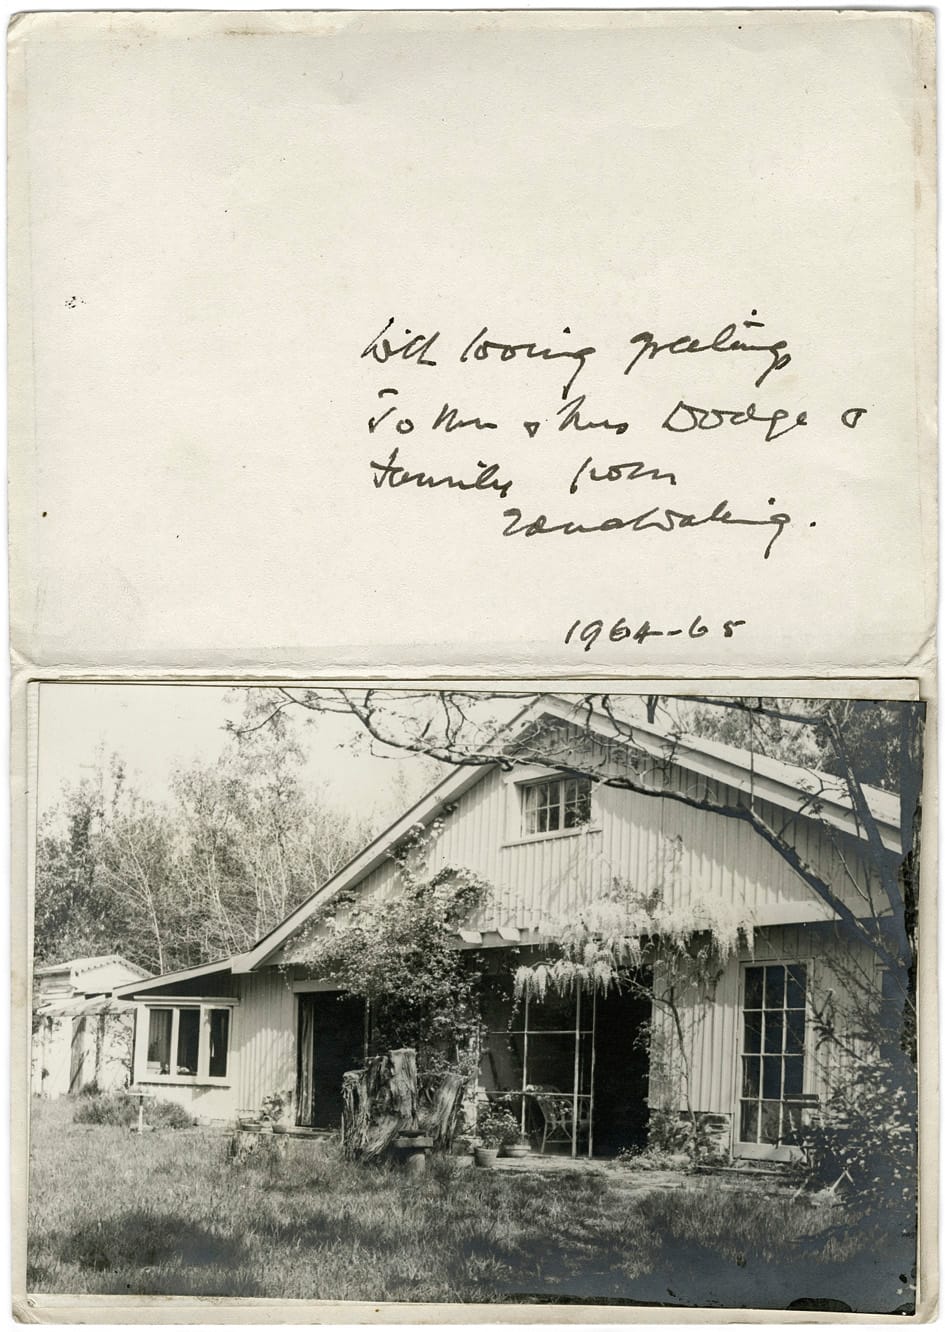 With loving greetings
To Mr & Mrs Dodge &
Family from
1964-65